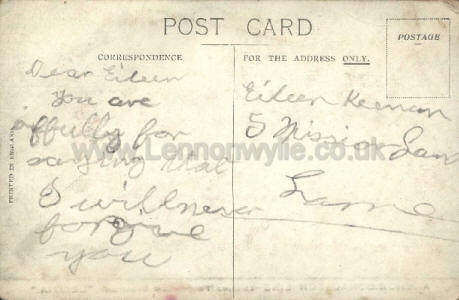 POST CARD
CORRESPONDENCE
FOR THE ADDRESS ONLY.
POSTAGE
PRINTED IN ENGLAND
Dear Eileen
You are
affully for
saying that
I will never
forgive
you
Eileen Keenan
5 Mission Lane
Larne
www.Lennonwylie.co.uk